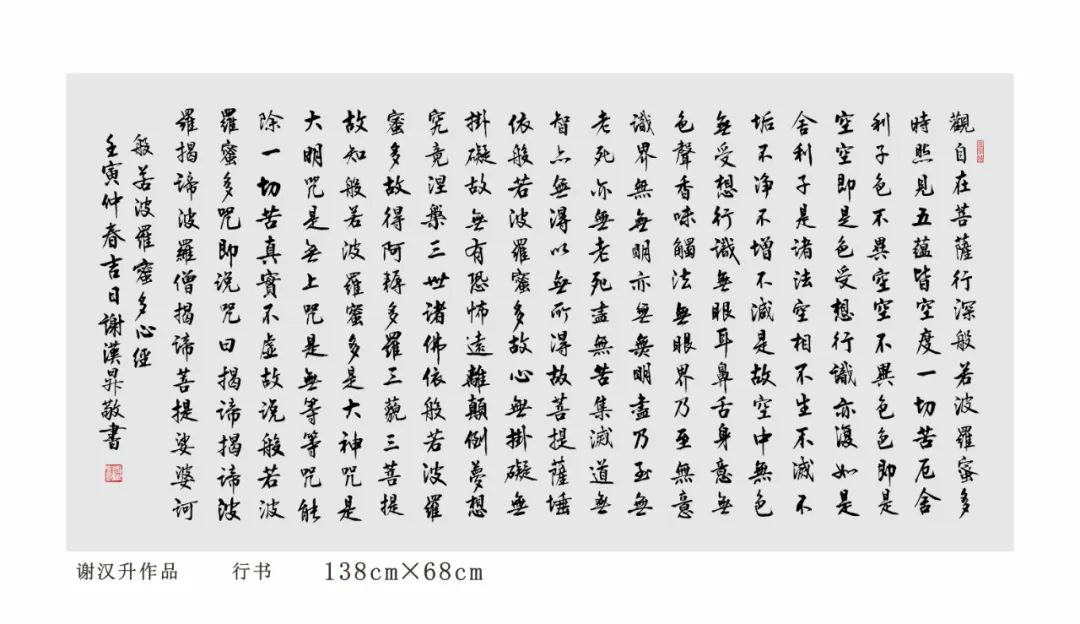 觀自在菩薩行深般若波羅蜜多
時照見五蘊皆空度一切苦厄舍
利子色不異空空不異色色即是
空空即是色受想行識亦復如是
舍利子是諸法空相不生不滅不
垢不净不增不減是故空中無色
無受想行識無眼耳鼻舌身意無
色聲香味觸法無眼界乃至無意
識界無無明亦無無明盡乃至無
老死亦無老死盡無苦集滅道無
智亦無得以無所得故菩提薩埵
依般若波羅蜜多故心無掛礙無
掛礙故無有恐怖遠離顛倒夢想
究竟涅槃三世諸佛依般若波羅
蜜多故得阿耨多羅三藐三菩提
故知般若波羅蜜多是大神咒是
大明咒是無上咒是無等等咒能
除一切苦真實不虛故说般若波
羅蜜多咒即说咒曰揭諦揭諦波
羅揭諦波羅僧揭諦菩提娑婆訶
般若波羅蜜多心經
壬寅仲春吉日謝漢昇敬書
谢汉升作品 行书 138cm×68cm